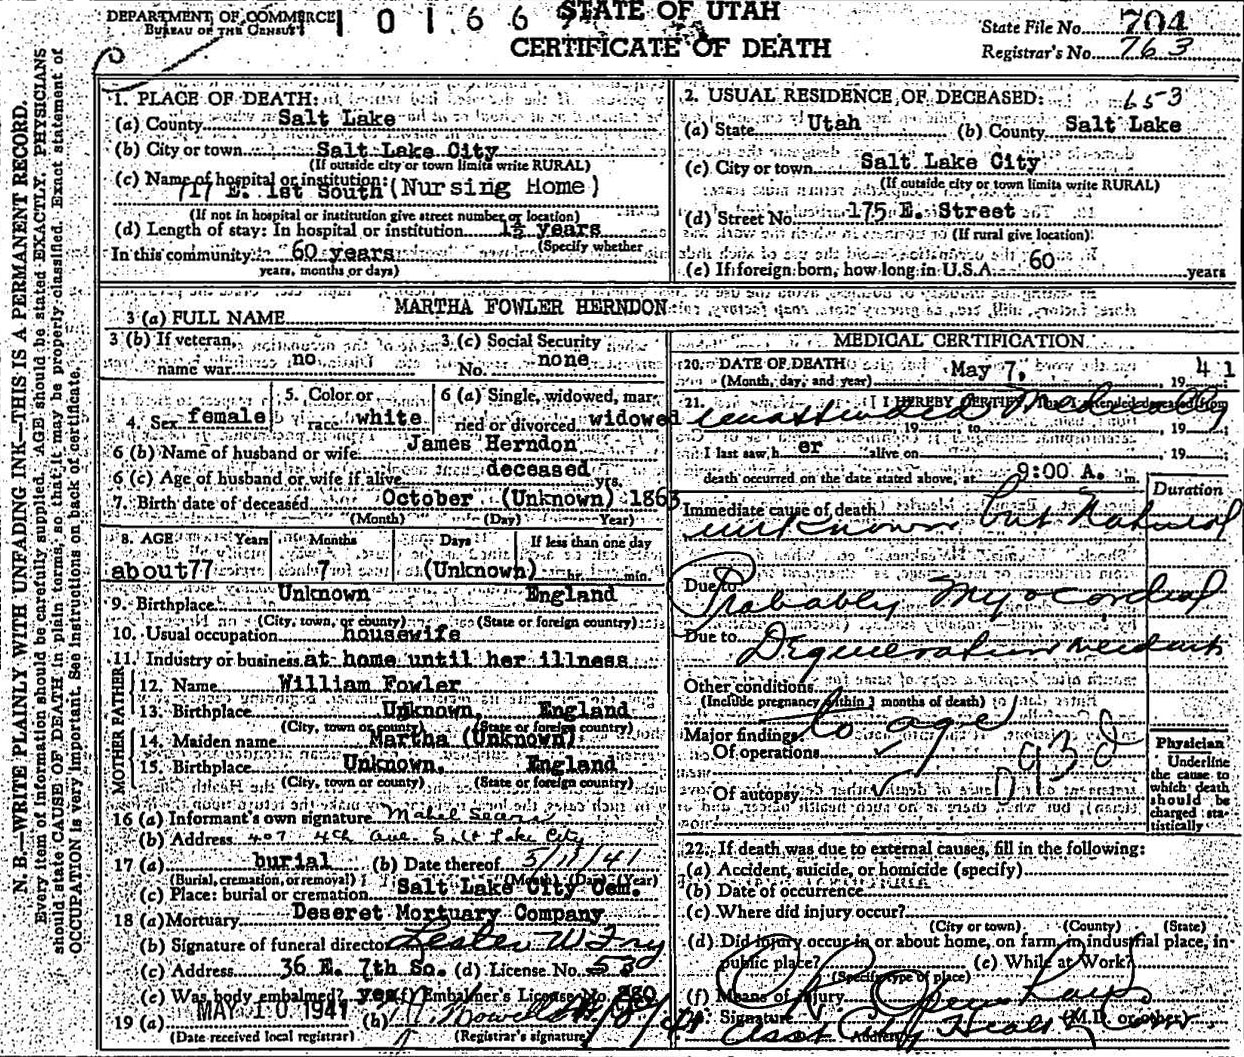 DEPARTMENT OF COMMERCE
BUREAU OF THE CENSUS
1 0 1 6 6
STATE OF UTAH
CERTIFICATE OF DEATH
State File No. 704
Registrar's No. 763
N. B.—WRITE PLAINLY WITH UNFADING INK—THIS IS A PERMANENT RECORD.
Every item of information should be carefully supplied. AGE should be stated EXACTLY. PHYSICIANS
should state CAUSE OF DEATH in plain terms, so that it may be properly classified. Exact statement of
OCCUPATION is very important. See instructions on back of certificate.
1. PLACE OF DEATH:
(a) County Salt Lake
(b) City or town Salt Lake City
(If outside city or town limits write RURAL)
(c) Name of hospital or institution:
717 E. 1st South (Nursing Home)
(If not in hospital or institution give street number or location)
(d) Length of stay: In hospital or institution 1½ years
(Specify whether
In this community 60 years
years, months or days)
2. USUAL RESIDENCE OF DECEASED: 653
(a) State Utah (b) County Salt Lake
(c) City or town Salt Lake City
(If outside city or town limits write RURAL)
(d) Street No. 175 E. Street
(If rural give location)
(e) If foreign born, how long in U.S.A. 60 years
3 (a) FULL NAME MARTHA FOWLER HERNDON
3 (b) If veteran, name war no
3 (c) Social Security No. none
4. Sex female
5. Color or race white
6 (a) Single, widowed, married or divorced widowed
6 (b) Name of husband or wife James Herndon
6 (c) Age of husband or wife if alive deceased yrs.
7. Birth date of deceased October (Unknown) 1863
(Month) (Day) (Year)
8. AGE Years Months Days If less than one day
about 77 7 (Unknown) hr. min.
9. Birthplace Unknown England
(City, town, or county) (State or foreign country)
10. Usual occupation housewife
11. Industry or business at home until her illness
FATHER
12. Name William Fowler
13. Birthplace Unknown, England
(City, town or county) (State or foreign country)
MOTHER
14. Maiden name Martha (Unknown)
15. Birthplace Unknown, England
(City, town or county) (State or foreign country)
16 (a) Informant's own signature Mabel Sears
(b) Address 407 4th Ave. Salt Lake City
17 (a) burial (b) Date thereof 5/11/41
(Burial, cremation, or removal) (Month) (Day) (Year)
(c) Place: burial or cremation Salt Lake City Cem.
18 (a) Mortuary Deseret Mortuary Company
(b) Signature of funeral director Lester W Fry
(c) Address 36 E. 7th So. (d) License No. 530
(e) Was body embalmed? yes (f) Embalmer's License No.
19 (a) MAY 10 1941 (b)
(Date received local registrar) (Registrar's signature)
MEDICAL CERTIFICATION
20. DATE OF DEATH May 7, 1941
(Month, day, and year)
21. I HEREBY CERTIFY, That I attended deceased from
unattended Medically
19 to 19
I last saw her alive on 19
death occurred on the date stated above, at 9:00 A. m.
Duration
Immediate cause of death
unknown but Natural
Due to Probably Myocordial
Due to Degeneration incident
Other conditions
(Include pregnancy within 3 months of death)
to age
Major findings:
Of operations
Of autopsy
93d
Physician
Underline
the cause to
which death
should be
charged sta-
tistically
22. If death was due to external causes, fill in the following:
(a) Accident, suicide, or homicide (specify)
(b) Date of occurrence
(c) Where did injury occur?
(City or town) (County) (State)
(d) Did injury occur in or about home, on farm, in industrial place, in
public place? (e) While at Work?
(Specify type of place)
(f) Means of Injury
Signature (M.D. or other)
Asst City Health Com.
Address